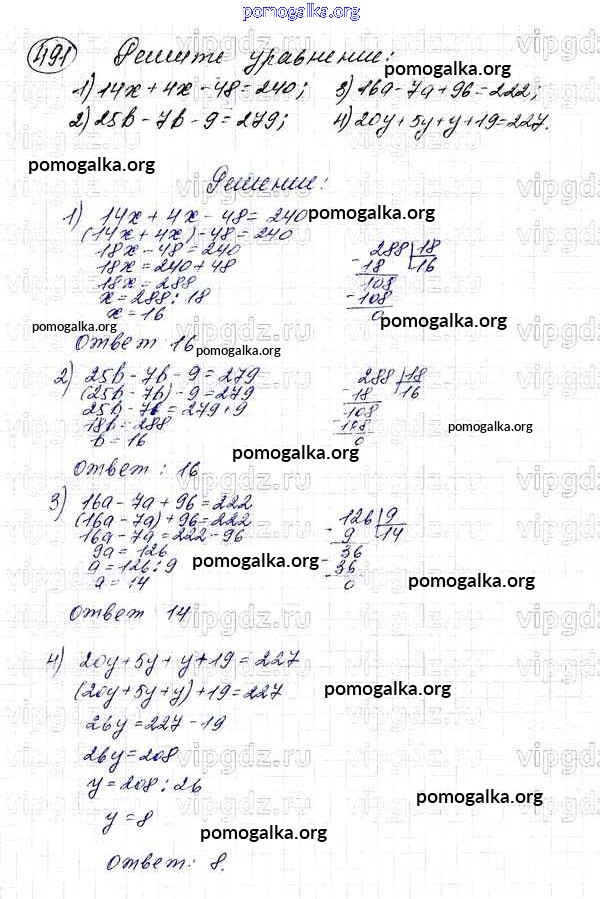 pomogalka.org
491 Решите уравнение:
1) 14x + 4x - 48 = 240; 3) 16a - 7a + 96 = 222;
2) 25b - 7b - 9 = 279; 4) 20y + 5y + y + 19 = 227.
Решение:
1) 14x + 4x - 48 = 240
(14x + 4x) - 48 = 240
18x - 48 = 240
18x = 240 + 48
18x = 288
x = 288 : 18
x = 16
288 18
- 18 16
108
- 108
0
Ответ 16
2) 25b - 7b - 9 = 279
(25b - 7b) - 9 = 279
25b - 7b = 279 + 9
18b = 288
b = 16
288 18
- 18 16
108
- 108
0
Ответ : 16
3) 16a - 7a + 96 = 222
(16a - 7a) + 96 = 222
16a - 7a = 222 - 96
9a = 126
a = 126 : 9
a = 14
126 9
- 9 14
36
- 36
0
Ответ 14
4) 20y + 5y + y + 19 = 227
(20y + 5y + y) + 19 = 227
26y = 227 - 19
26y = 208
y = 208 : 26
y = 8
Ответ : 8.